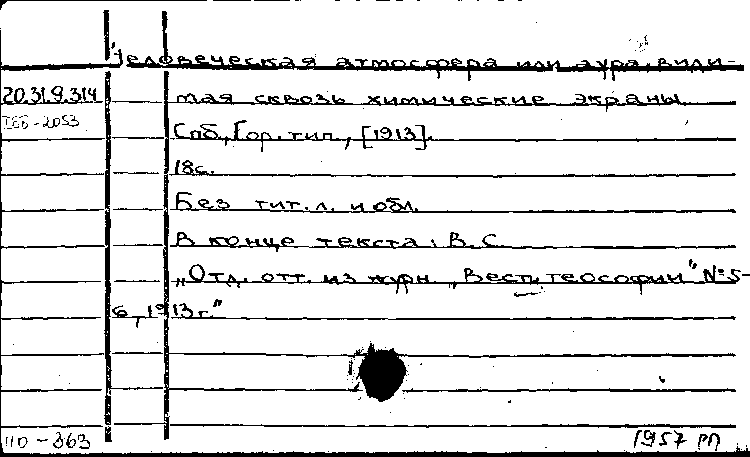 Человеческая атмосфера или аура, види-
20.31.9.314
мая сквозь химические экраны.
Спб., Гор. тип., [1913].
18с.
Без тит. л. и обл.
В конце текста: В. С.
„Отд. отт. из журн. „Вестн. теософии" № 5-
6, 1913 г."
1957 РП